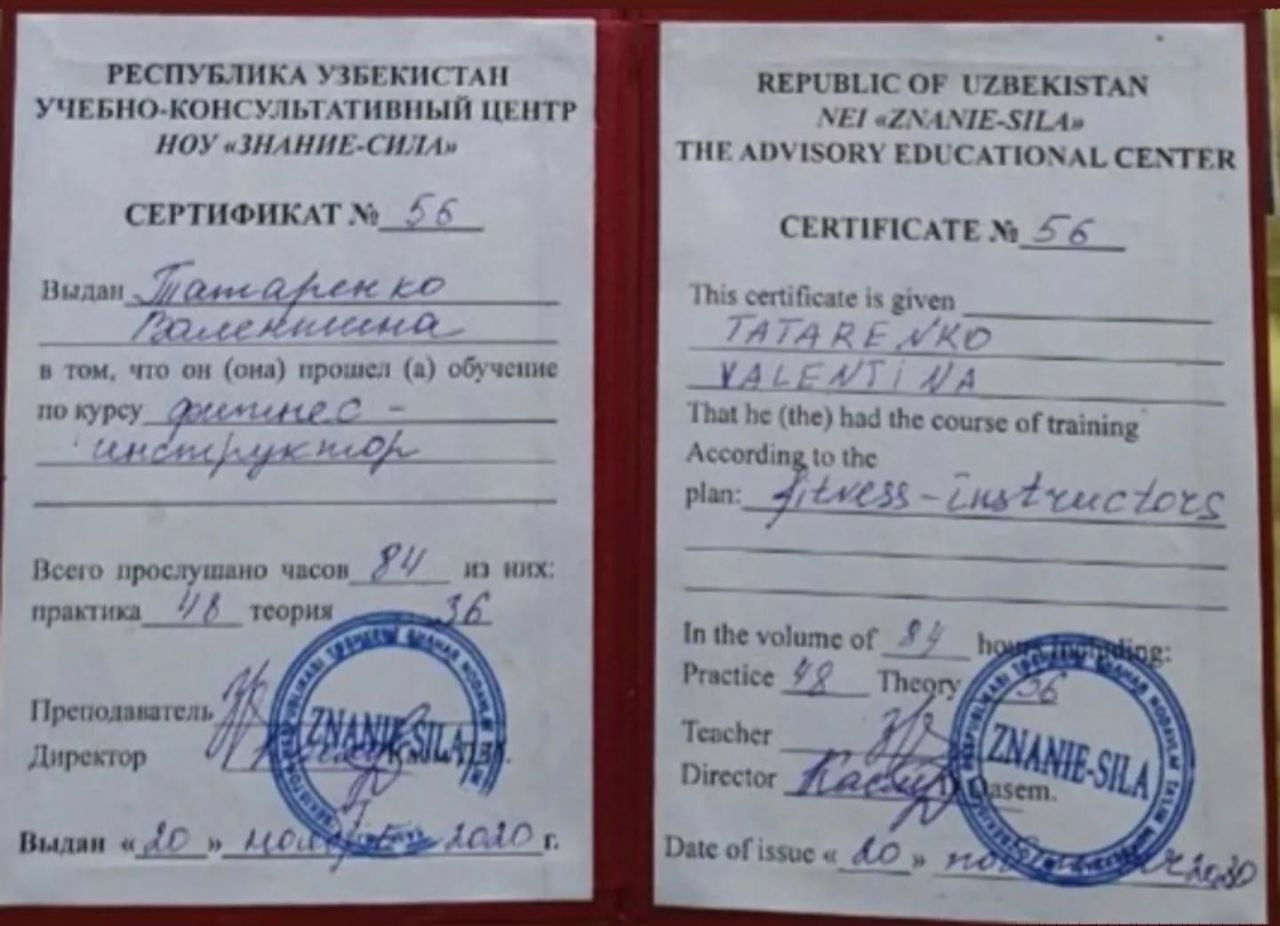 РЕСПУБЛИКА УЗБЕКИСТАН
УЧЕБНО-КОНСУЛЬТАТИВНЫЙ ЦЕНТР
НОУ «ЗНАНИЕ-СИЛА»
СЕРТИФИКАТ № 56
Выдан Татаренко
Валентина
в том, что он (она) прошел (а) обучение
по курсу фитнес -
инструктор
Всего прослушано часов 84 из них:
практика 48 теория 36
Преподаватель
Директор
ZNANIE-SILA
Выдан «20» ноября 2020 г.
REPUBLIC OF UZBEKISTAN
NEI «ZNANIE-SILA»
THE ADVISORY EDUCATIONAL CENTER
CERTIFICATE № 56
This certificate is given
TATARENKO
VALENTINA
That he (the) had the course of training
According to the
plan: fitness-instructors
In the volume of 84 hours including:
Practice 48 Theory 36
Teacher
Director Qasem.
ZNANIE-SILA
Date of issue «20»